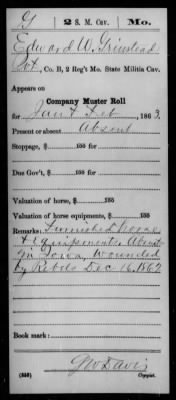 G | 2 S. M. Cav. | Mo.
Edward W. Grinstead
Pvt, Co. B, 2 Reg't Mo. State Militia Cav.
Appears on
Company Muster Roll
for Jan & Feb, 1863.
Present or absent Absent
Stoppage, $ 100 for
Due Gov't, $ 100 for
Valuation of horse, $ 100
Valuation of horse equipments, $ 100
Remarks: Furnished horse
& equipments. Absent
in Iowa, Wounded
by Rebels Dec 16, 1862
Book mark:
G W Davis
(358) Copyist.